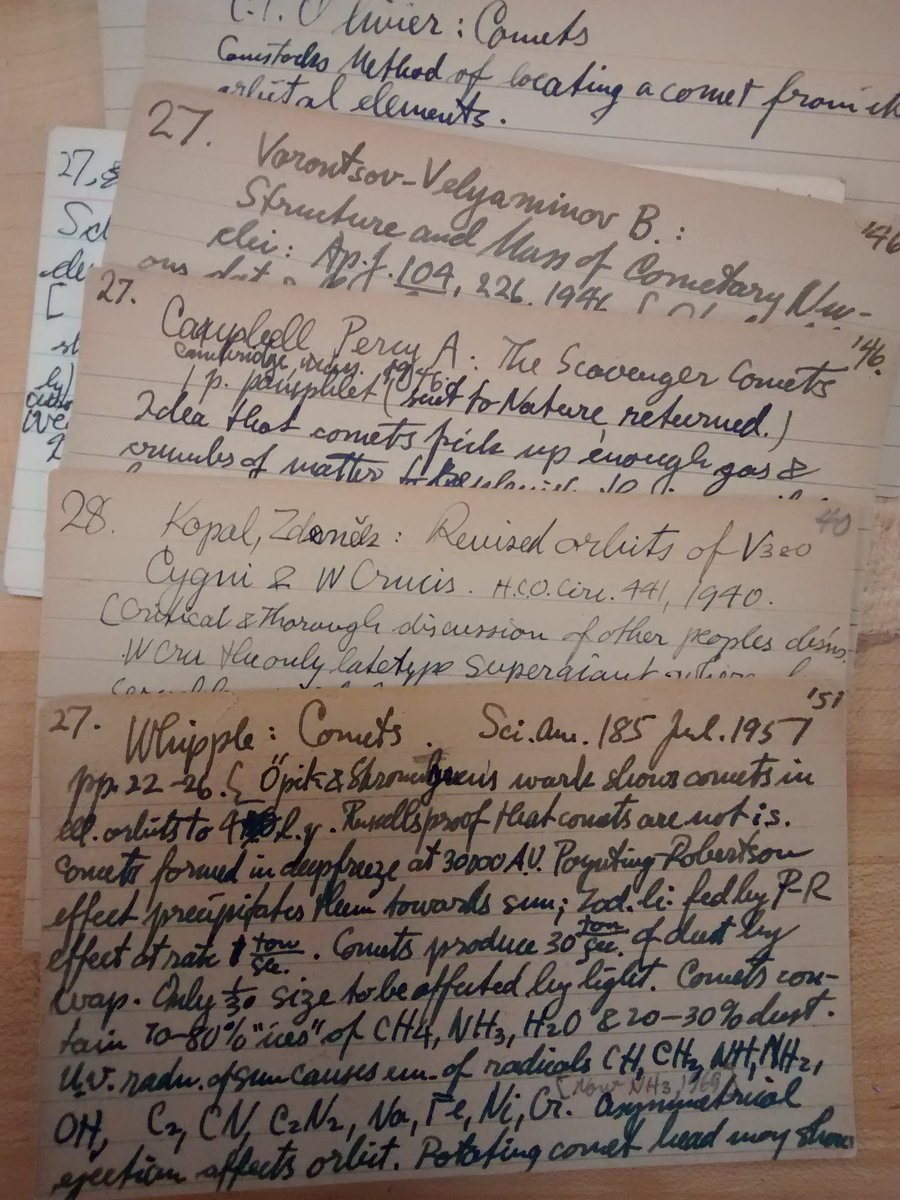 C.P. Olivier: Comets
Comstocks Method of locating a comet from its
orbital elements.
27.
Vorontsov-Velyaminov B.:
'46
Structure and Mass of Cometary Nu-
clei: Ap.J. 104, 226. 1946
27.
Campbell Percy A: The Scavenger Comets
'46.
Cambridge, 1946.
1 p. pamphlet (sent to Nature, returned.)
Idea that comets pick up enough gas &
crumbs of matter
27,
28.
Kopal, Zdeněk: Revised orbits of V380
40
Cygni & W Crucis. H.C.O. Circ. 441, 1940.
(Critical & thorough discussion of other peoples des'ns.
W Cru the only latetype supergiant where
27.
Whipple: Comets. Sci. Am. 185 Jul. 1951
'51
pp. 22-26. { Öpik & Strömgren's work shows comets in
ell. orbits to 4 l.y. Russells proof that comets are not i.s.
Comets formed in deepfreeze at 30000 A.U. Poynting-Robertson
effect precipitates them towards sun; Zod. li. fed by P-R
effect at rate 1 ton/sec. Comets produce 30 ton/sec. of dust by
evap. Only 1/30 size to be affected by light. Comets con-
tain 70-80% "ices" of CH4, NH3, H2O & 20-30% dust.
U.v. radn. of sun causes em. of radicals CH, CH2, NH, NH2,
[Now NH3, 1969]
OH, C2, CN, C2N2, Na, Fe, Ni, Cr. Asymmetrical
ejection affects orbit. Rotating comet head may show